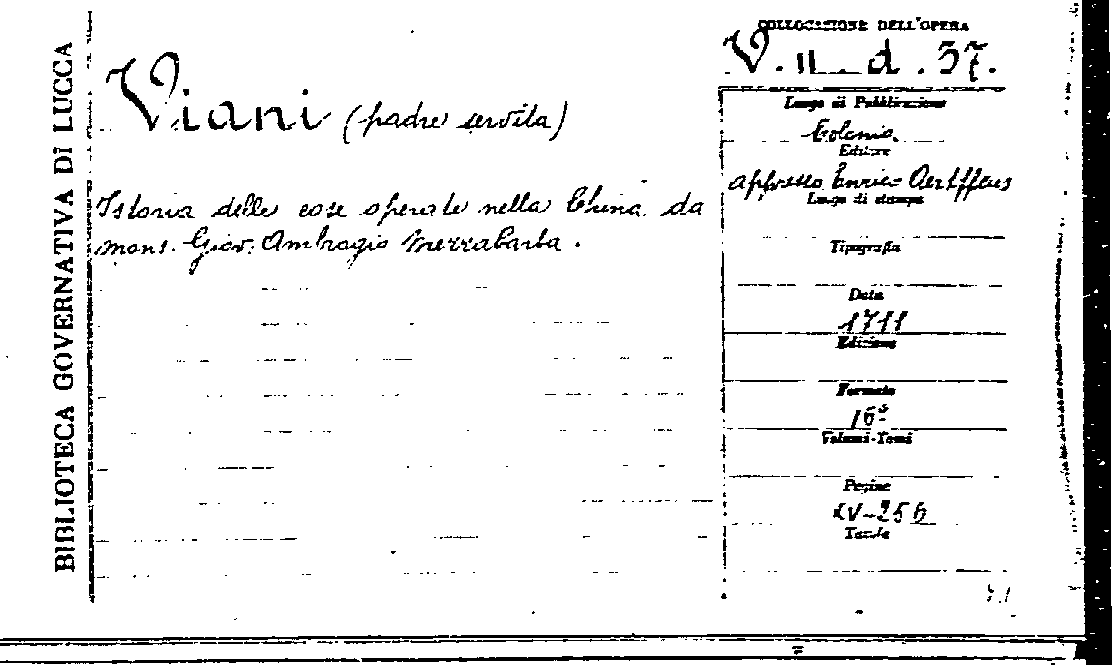 BIBLIOTECA GOVERNATIVA DI LUCCA
Viani (padre servita)
Istoria delle cose operate nella China da
mons. Giov. Ambrogio Mezzabarba.
COLLOCAZIONE DELL'OPERA
V. II. d. 37.
Luogo di Pubblicazione
Colonia.
Editore
appresso Enrico Aertffens
Luogo di stampa
Tipografia
Data
1711
Edizione
Formato
16º
Volumi-Tomi
Pagine
XV-256
Tavole